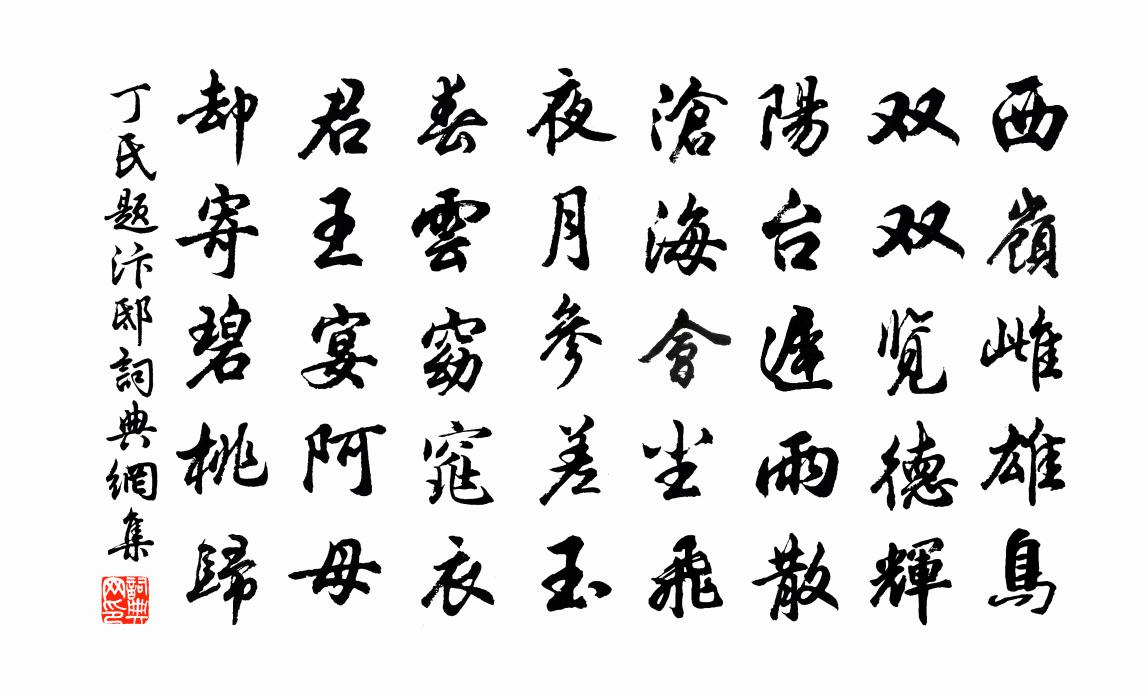 西嶺雌雄鳥
双双览德輝
陽台遲雨散
滄海會尘飛
夜月參差玉
春雲窈窕衣
君王宴阿母
却寄碧桃歸
丁氏題汴邸詞典網集
詞典网印